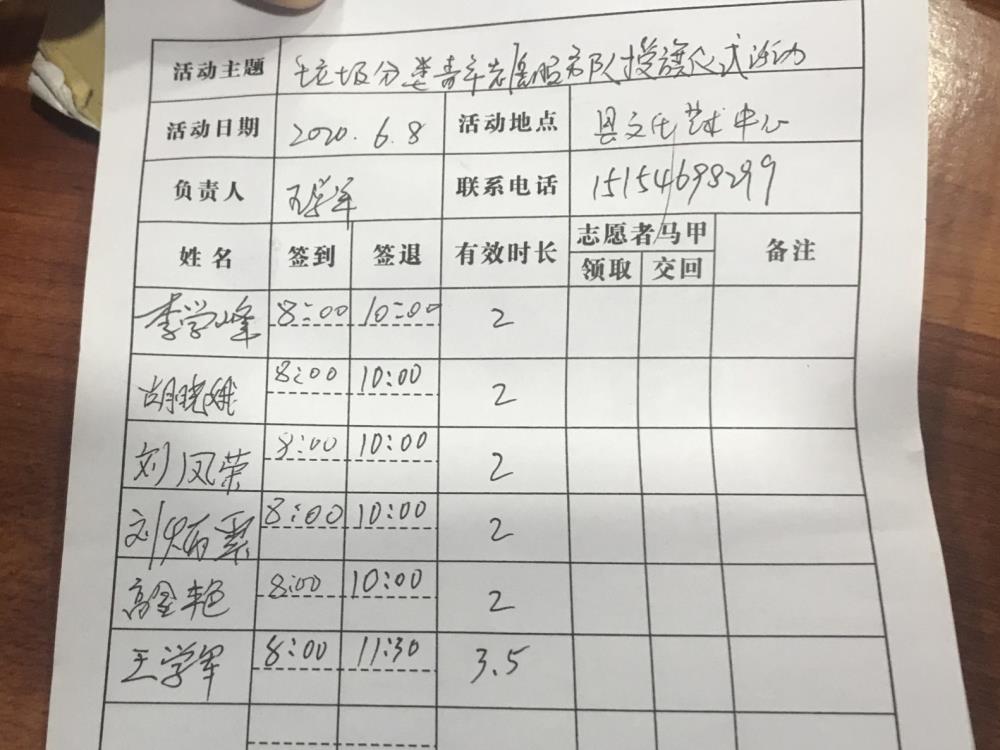 活动主题 垃圾分类青年志愿服务队授旗仪式活动
活动日期 2020.6.8 活动地点 县文化艺术中心
负责人 王学军 联系电话 15154698299
姓名 签到 签退 有效时长 志愿者马甲 备注
领取 交回
李学峰 8:00 10:00 2
胡晓娥 8:00 10:00 2
刘凤荣 8:00 10:00 2
刘炳 8:00 10:00 2
高金艳 8:00 10:00 2
王学军 8:00 11:30 3.5